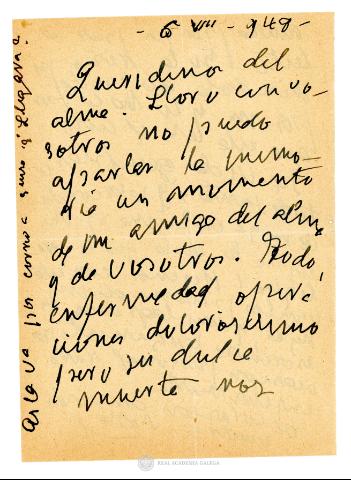 - 6 VII - 948 -
Queridimos del
alma. Lloro con vo-
sotros no puedo
apartar la memo-
ria un momento
de mi amigo del alma
y de vosotros. Todo,
enfermedad opera-
ciones dolorosisimo
pero su dulce
muerte nos
va por correo a
REAL ACADEMIA GALEGA